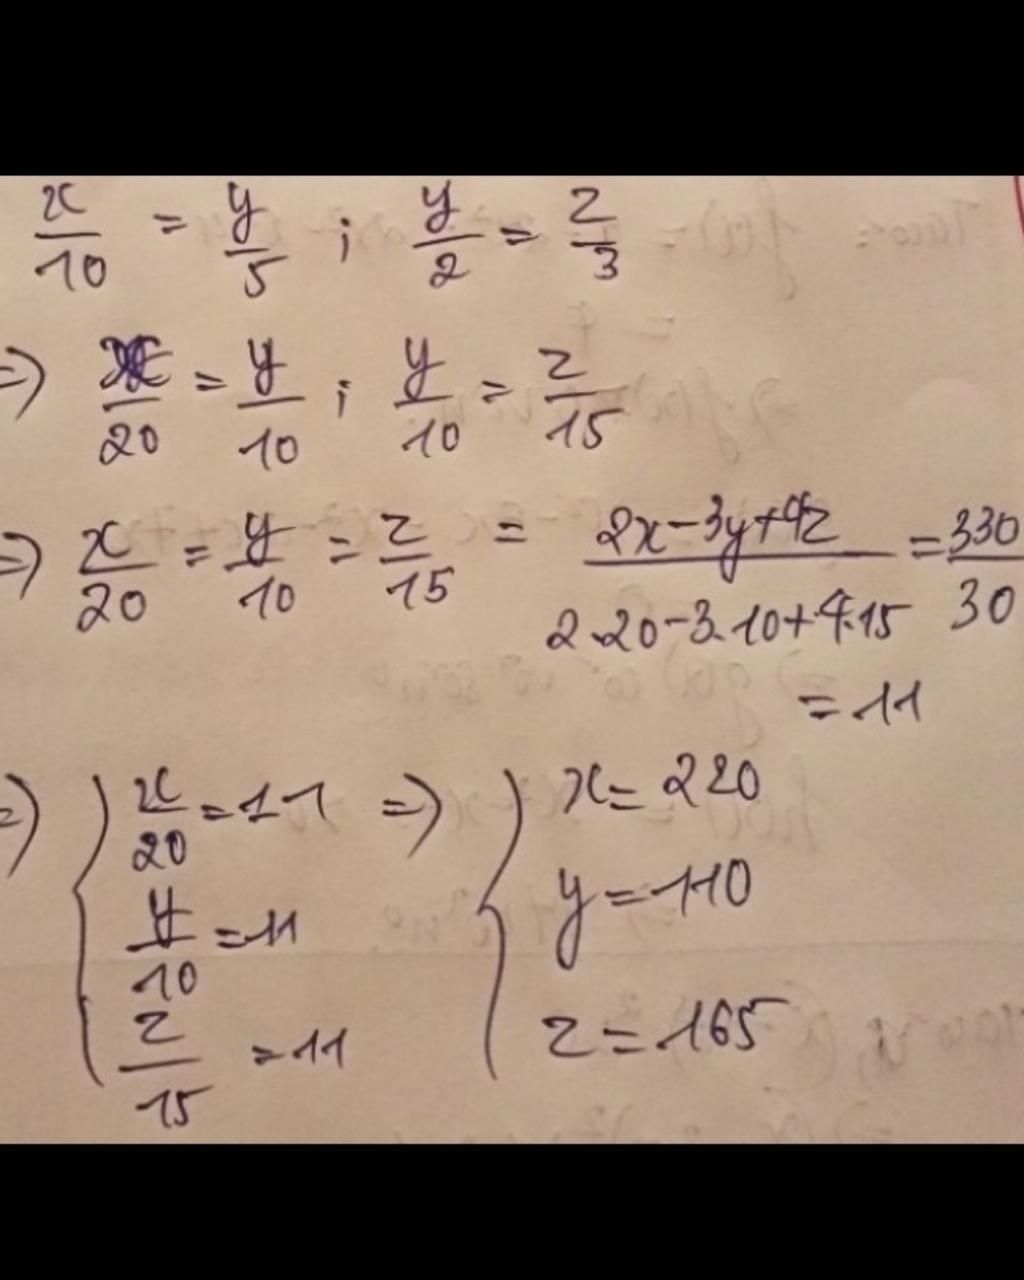 x/10 = y/5 ; y/2 = z/3
=> x/20 = y/10 ; y/10 = z/15
=> x/20 = y/10 = z/15 = (2x-3y+4z)/(2.20-3.10+4.15) = 330/30
= 11
=> { x/20 = 11 => { x = 220
y/10 = 11 y = 110
z/15 = 11 z = 165